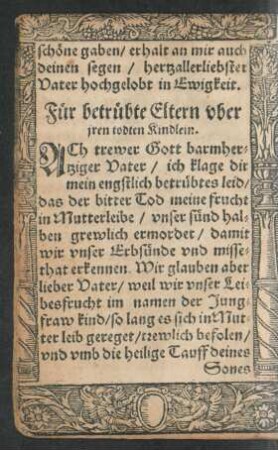 schöne gaben/ erhalt an mir auch
deinen segen / hertzallerliebster
Vater hochgelobt in Ewigkeit.
Für betrübte Eltern vber
jren todten Kindlein.
ACh trewer Gott barmher-
tziger Vater / ich klage dir
mein engstlich betrübtes leid/
das der bitter Tod meine frucht
in Mutterleibe / vnser sünd hal-
ben grewlich ermordet / damit
wir vnser Erbsünde vnd misse-
that erkennen. Wir glauben aber
lieber Vater/ weil wir vnser Lei-
besfrucht im namen der Jung-
fraw kind/ so lang es sich in Mut-
ter leib gereget/ trewlich befolen/
vnd vmb die heilige Tauff deines
Sones